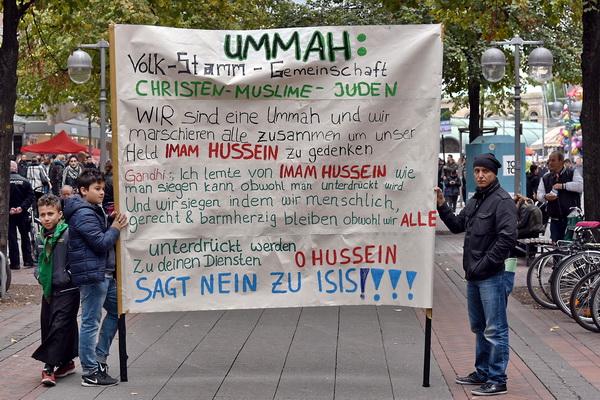 UMMAH:
Volk-Stamm-Gemeinschaft
CHRISTEN-MUSLIME-JUDEN
WIR sind eine Ummah und wir
marschieren alle zusammen um unser
Held IMAM HUSSEIN zu gedenken
Gandhi: Ich lernte von IMAM HUSSEIN wie
man siegen kann obwohl man unterdrückt wird
Und wir siegen indem wir menschlich,
gerecht & barmherzig bleiben obwohl wir ALLE
unterdrückt werden
Zu deinen Diensten O HUSSEIN
SAGT NEIN ZU ISIS!!!!!